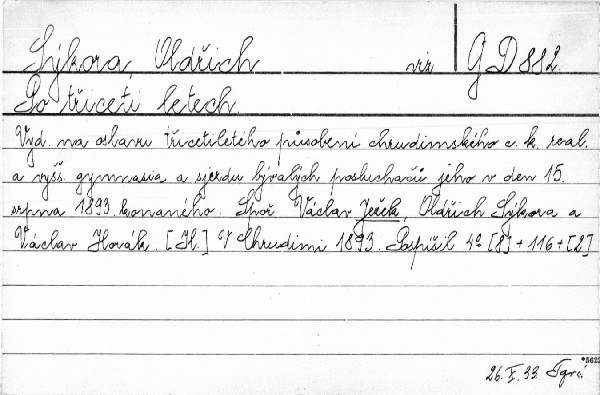 Sýkora, Oldřich viz GD 882.
Po třiceti letech.
Vyd. na oslavu třicetiletého působení chrudimského c. k. real.
a vyšš. gymnasia a sjezdu bývalých posluchačů jeho v den 15.
srpna 1893 konaného. Spoř. Václav Ježek, Oldřich Sýkora a
Václav Horák. [Il.] V Chrudimi 1893. Pospíšil 4° [8] + 116 + [2]
*5622
26. X. 33.